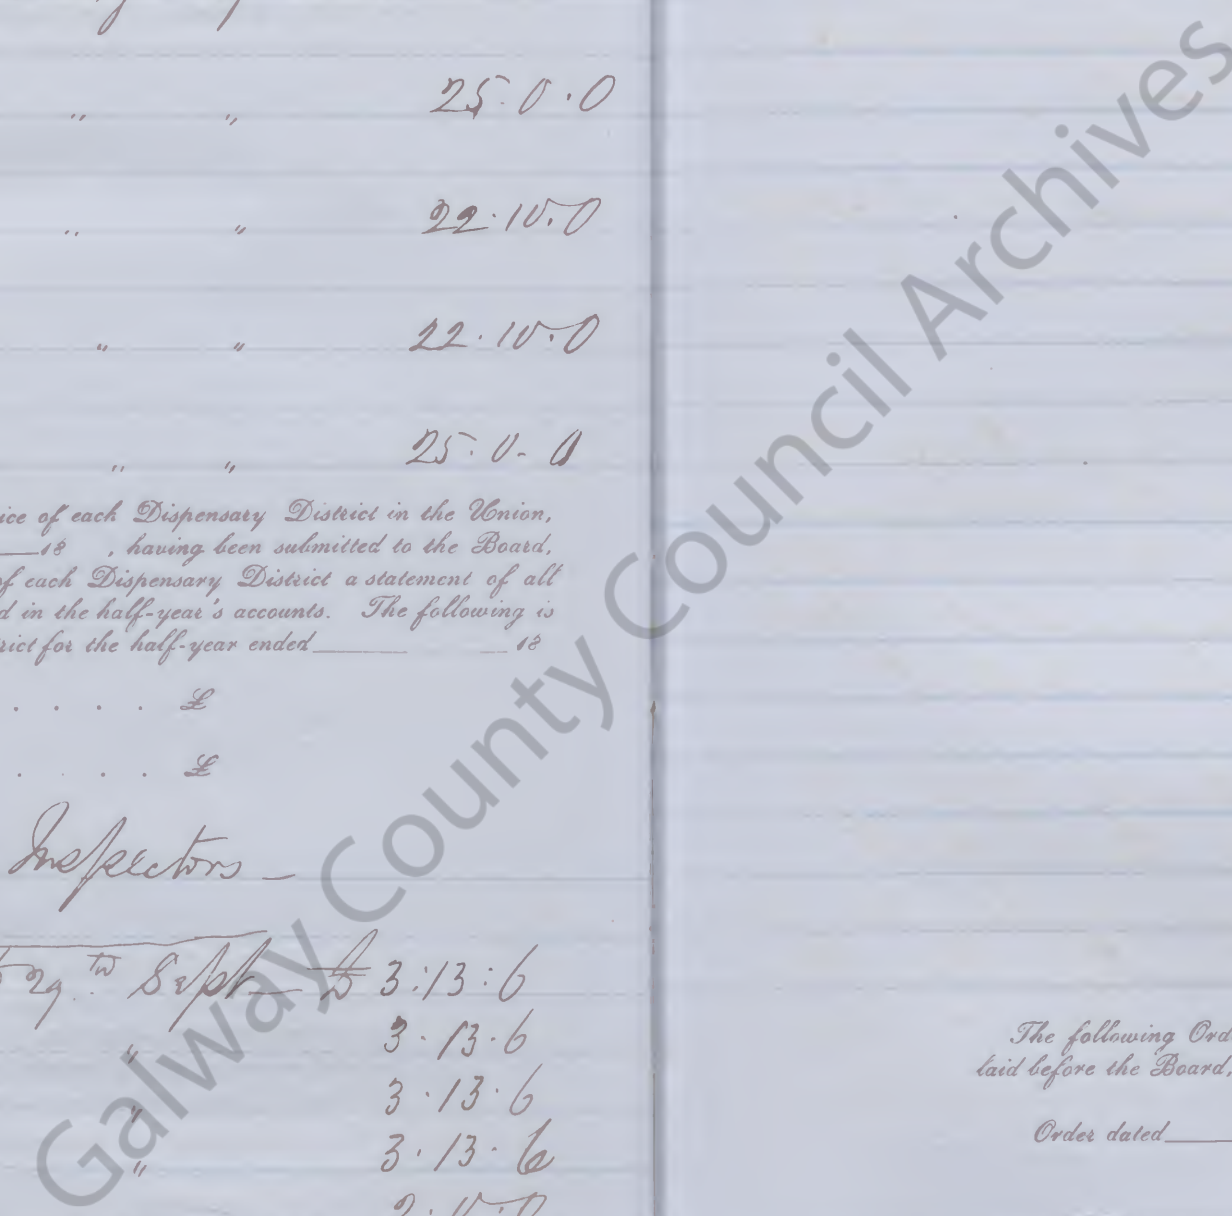 „ „ 25.0.0
„ „ 22.10.0
„ „ 22.10.0
„ „ 25.0-0
ice of each Dispensary District in the Union,
18 , having been submitted to the Board,
of each Dispensary District a statement of all
d in the half-year's accounts. The following is
rict for the half-year ended 18
. . . . £
. . . . £
Inspectors –
29th Sept – £ 3:13:6
„ 3.13.6
„ 3.13.6
„ 3.13.6
The following Ord
laid before the Board,
Order dated
Galway County Council Archives